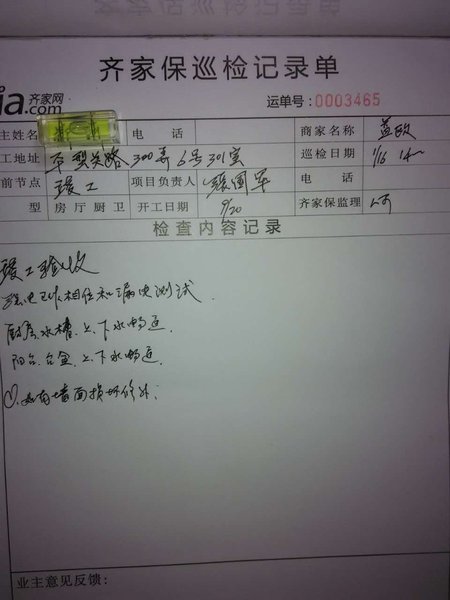 齐家保巡检记录单
ia 齐家网
.com
运单号:0003465
主姓名 电 话 商家名称 益改
工地址 路300弄6号301室 巡检日期 1/16
前节点 竣工 项目负责人 张国军 电 话
型 房 厅 厨 卫 开工日期 9/20 齐家保监理
检查内容记录
竣工验收
强电已做相位和漏电测试.
厨房水槽上、下水畅通.
阳台台盆上、下水畅通.
如有墙面损坏修补;
业主意见反馈: